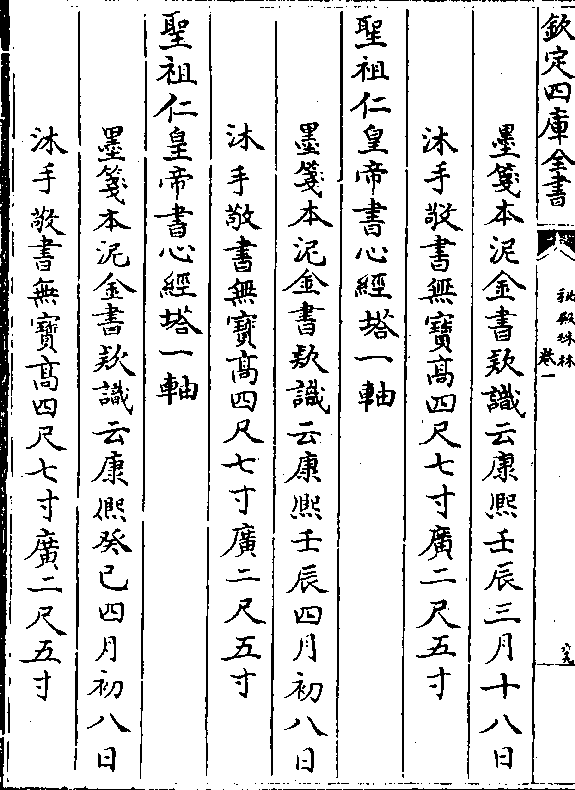 欽定四庫全書
秘殿珠林
卷一
墨箋本泥金書欵識云康熙壬辰三月十八日
沐手敬書無寶高四尺七寸廣二尺五寸
聖祖仁皇帝書心經塔一軸
墨箋本泥金書欵識云康熙壬辰四月初八日
沐手敬書無寶高四尺七寸廣二尺五寸
聖祖仁皇帝書心經塔一軸
墨箋本泥金書欵識云康熙癸巳四月初八日
沐手敬書無寶高四尺七寸廣二尺五寸